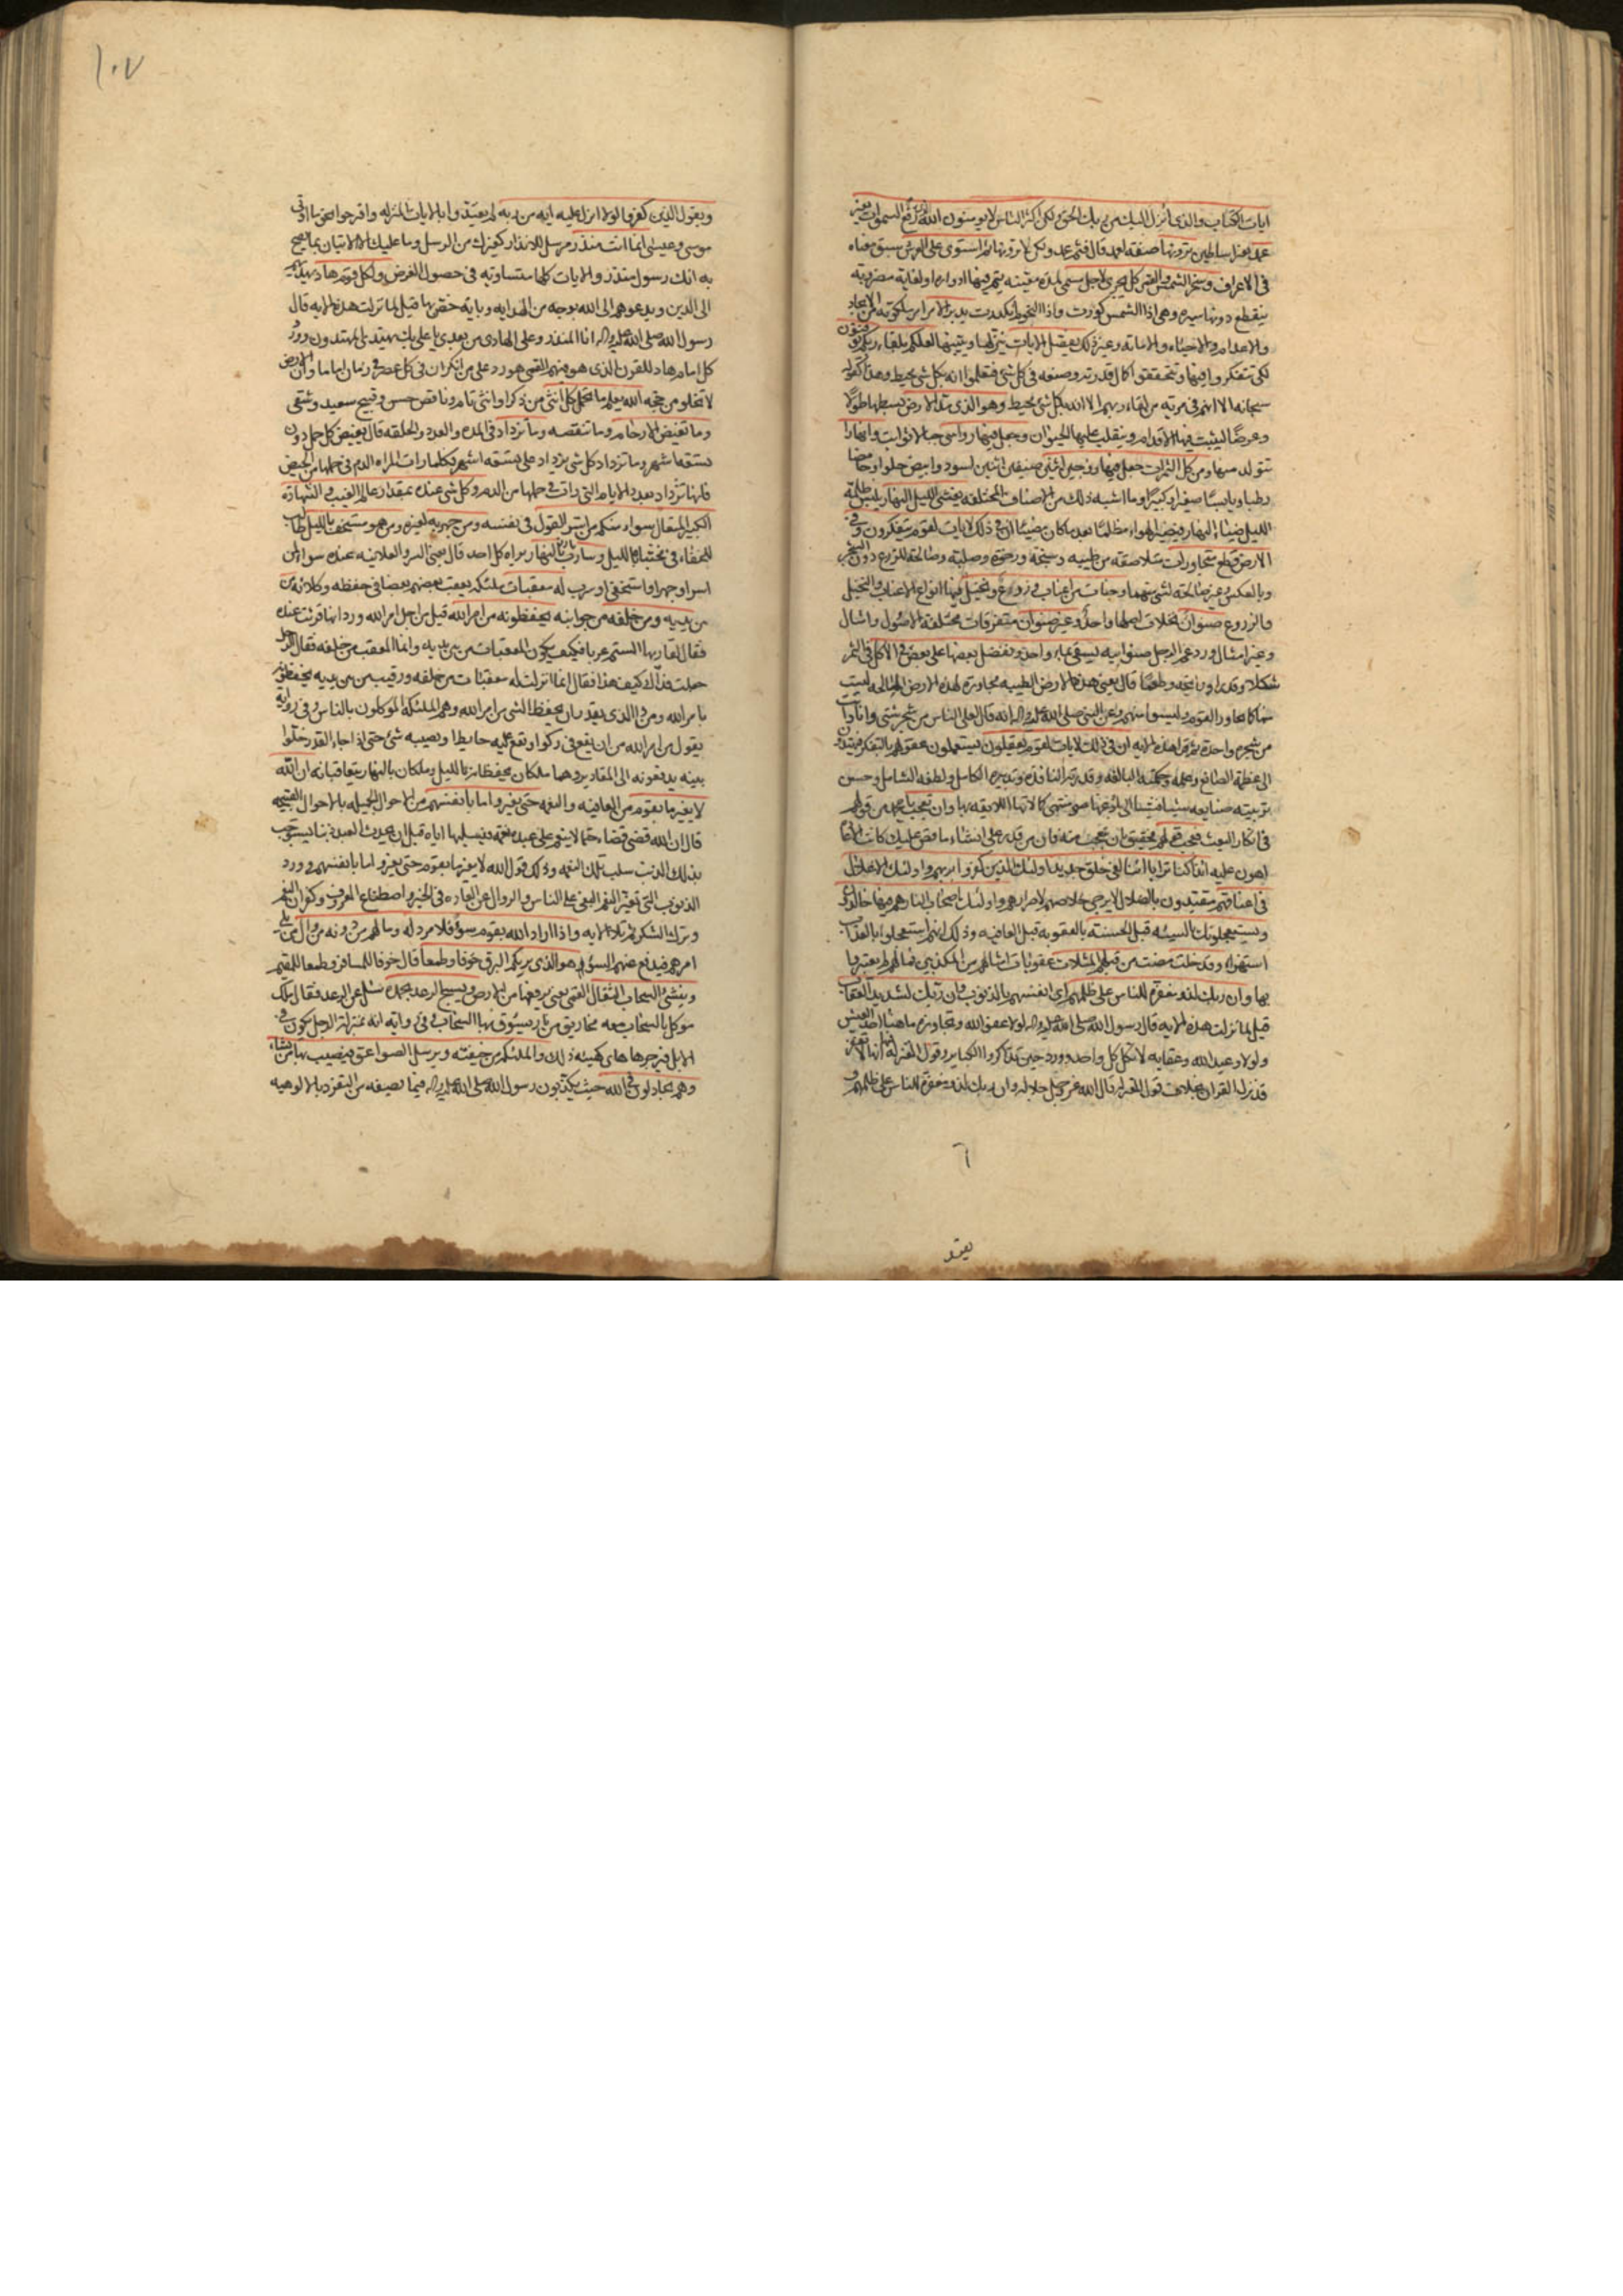 ايات الكتاب والذى انزل اليك من ربك الحق ولكن اكثر الناس لا يؤمنون الله الذى رفع السموات بغير
عمد بغير اساطين ترونها صفة لعمد قال فثم عمد ولكن لا ترونها ثم استوى على العرش سبق معناه
فى الاعراف وسخر الشمس والقمر كل يجرى لاجل مسمى لمدة معينة يتم فيها ادواره او لغاية مضروبة
ينقطع دونها سيره وهى اذا الشمس كورت واذا النجوم انكدرت يدبر الامر امر ملكوته من الايجاد
والاعدام والاحياء والاماتة وغير ذلك يفصل الايات ينزلها ويبينها لعلكم بلقاء ربكم توقنون
لكى تتفكروا فيها وتتحققوا كمال قدرته وصنعه فى كل شئ فتعلموا انه بكل شئ محيط وهذا كقوله
سبحانه الا انهم فى مرية من لقاء ربهم الا انه بكل شئ محيط وهو الذى مد الارض بسطها طولا
وعرضا ليثبت فيها الاقدام ويتقلب عليها الحيوان وجعل فيها رواسى جبالا ثوابت وانهارا
تتولد منها ومن كل الثمرات جعل فيها زوجين اثنين صنفين اثنين اسود وابيض حلوا وحامضا
رطبا ويابسا صغيرا وكبيرا وما اشبه ذلك من الاصناف المختلفة يغشى الليل النهار يلبس ظلمة
الليل ضياء النهار فيصير الهواء مظلما بعد ما كان مضيئا ان فى ذلك لايات لقوم يتفكرون وفى
الارض قطع متجاورات متلاصقة من طيبة وسبخة ورخوة وصلبة وصالحة للزرع دون الشجر
وبالعكس وغير صالحة لشئ منهما وجنات من اعناب وزروع ونخيل فيها انواع الاعناب والنخيل
والزروع صنوان نخلات اصلها واحد وغير صنوان متفرقات مختلفة الاصول وامثال
وغير امثال ورد عم الرجل صنو ابيه يسقى بماء واحد ونفضل بعضها على بعض فى الاكل فى الثمر
شكلا وقدرا ورايحة وطعما قال يعنى هذه الارض الطيبة مجاورة لهذه الارض المالحة ليست
منها كما يجاور القوم القوم وليسوا منهم وعن النبى صلى الله عليه واله انه قال لعلى الناس من شجر شتى وانا وانت
من شجرة واحدة ثم قرا هذه الاية ان فى ذلك لايات لقوم يعقلون يستعملون عقولهم بالتفكر فيهتدون
الى عظمة الصانع وعلمه وحكمته البالغة وقدرته النافذة وتدبيره الكامل ولطفه الشامل وحسن
تربيته صنايعه شيئا فشيئا الى بلوغها منتهى كمالاتها اللايقة بها وان تعجب يا محمد من قولهم
فى انكار البعث فعجب قولهم فحقيق بان يتعجب منه فان من قدر على انشاء ما قص عليك كانت الاعادة
اهون عليه ائذا كنا ترابا ائنا لفى خلق جديد اولئك الذين كفروا بربهم واولئك الاغلال
فى اعناقهم مقيدون بالضلال لا يرجى خلاصهم لاصرارهم واولئك اصحاب النار هم فيها خالدون
ويستعجلونك بالسيئة قبل الحسنة بالعقوبة قبل العافية وذلك انهم استعجلوا بالعذاب
استهزاء وقد خلت مضت من قبلهم المثلات عقوبات امثالهم من المكذبين فما لهم لم يعتبروا
بها وان ربك لذو مغفرة للناس على ظلمهم اى انفسهم بالذنوب وان ربك لشديد العقاب
قيل لما نزلت هذه الاية قال رسول الله صلى الله عليه واله لولا عفو الله وتجاوزه ما هنأ احد العيش
ولولا وعيد الله وعقابه لاتكل كل واحد وورد حين تذاكروا الكباير وقول المعتزلة فيها انها لا تغفر
قد نزل القران بخلاف قول المعتزلة قال الله عز وجل جلاله وان ربك لذو مغفرة للناس على ظلمهم
يقو
١٠٧
ويقول الذين كفروا لولا انزل عليه اية من ربه لم يعتدوا بالايات المنزلة واقترحوا نحو ما اوتى
موسى وعيسى انما انت منذر مرسل للانذار كغيرك من الرسل وما عليك الا الاتيان بما يصح
به انك رسول منذر والايات كلها متساوية فى حصول الغرض ولكل قوم هاد يهديهم
الى الدين ويدعوهم الى الله بوجه من الهداية وباية خص بها قيل لما نزلت هذه الاية قال
رسول الله صلى الله عليه واله انا المنذر وعلى الهادى من بعدى يا على بك يهتدى المهتدون وورد
كل امام هاد للقرن الذى هو فيهم القمى هو رد على من انكر ان فى كل عصر وزمان اماما وان الارض
لا تخلو من حجة الله يعلم ما تحمل كل انثى من ذكر او انثى تام وناقص حسن وقبيح سعيد وشقى
وما تغيض الارحام وما تنقصه وما تزداد فى المدة والعدد والخلقة قال يغيض كل حمل دون
تسعة اشهر وما تزداد كل شئ يزداد على تسعة اشهر فكلما رات المراة الدم فى حملها من الحيض
فانها تزداد بعدد الايام التى رات فى حملها من الدم وكل شئ عنده بمقدار عالم الغيب والشهادة
الكبير المتعال سواء منكم من اسر القول فى نفسه ومن جهر به لغيره ومن هو مستخف بالليل طالب
للخفاء فى مختبأ بالليل وسارب بارز بالنهار يراه كل احد قال يعنى السر والعلانية عنده سواء لمن
اسر او جهر او استخفى او سرب له معقبات ملئكة يعقب بعضهم بعضا فى حفظه وكلائته من
بين يديه ومن خلفه من جوانبه يحفظونه من امر الله قيل من اجل امر الله ورد انها قرئت عنده
فقال لقاريها الستم عربا فكيف يكون المعقبات من بين يديه وانما المعقب من خلفه فقال الرجل
جعلت فداك كيف هذا فقال انما انزلت له معقبات من خلفه ورقيب من بين يديه يحفظونه
بامر الله ومن ذا الذى يقدر ان يحفظ الشئ من امر الله وهم الملئكة الموكلون بالناس وفى رواية
يقول من امر الله من ان يقع فى ركى او يقع عليه حايط او يصيبه شئ حتى اذا جاء القدر خلوا
بينه يدفعونه الى المقادير وهما ملكان يحفظانه بالليل وملكان بالنهار يتعاقبانه ان الله
لا يغير ما بقوم من العافية والنعمة حتى يغيروا ما بانفسهم من الاحوال الجميلة بالاحوال القبيحة
قال ان الله قضى قضاء حتما لا ينعم على عبده نعمة فيسلبها اياه قبل ان يحدث العبد ذنبا يستوجب
بذلك الذنب سلب تلك النعمة وذلك قول الله لا يغير ما بقوم حتى يغيروا ما بانفسهم وورد
الذنوب التى تغير النعم البغى على الناس والزوال عن العادة فى الخير واصطناع المعروف وكفران النعم
وترك الشكر ثم تلا الاية واذا اراد الله بقوم سوءا فلا مرد له وما لهم من دونه من وال من يلى
امرهم فيدفع عنهم السوء هو الذى يريكم البرق خوفا وطمعا قال خوفا للمسافر وطمعا للمقيم
وينشئ السحاب الثقال القمى يعنى يرفعها من الارض ويسبح الرعد بحمده سئل عن الرعد فقال ملك
موكل بالسحاب معه مخاريق من نار يسوق بها السحاب وفى رواية انه بمنزلة الرجل يكون فى
الابل فيزجرها هاى كهيئة ذلك والملئكة من خيفته ويرسل الصواعق فيصيب بها من يشاء
وهم يجادلون فى الله حيث يكذبون رسول الله صلى الله عليه واله فيما يصفه من التفرد بالالوهية